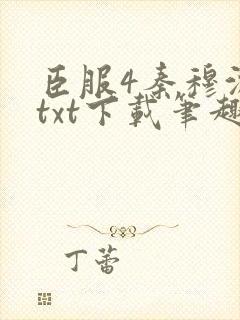 臣服4秦穆
txt下载笔趣
丁蕾